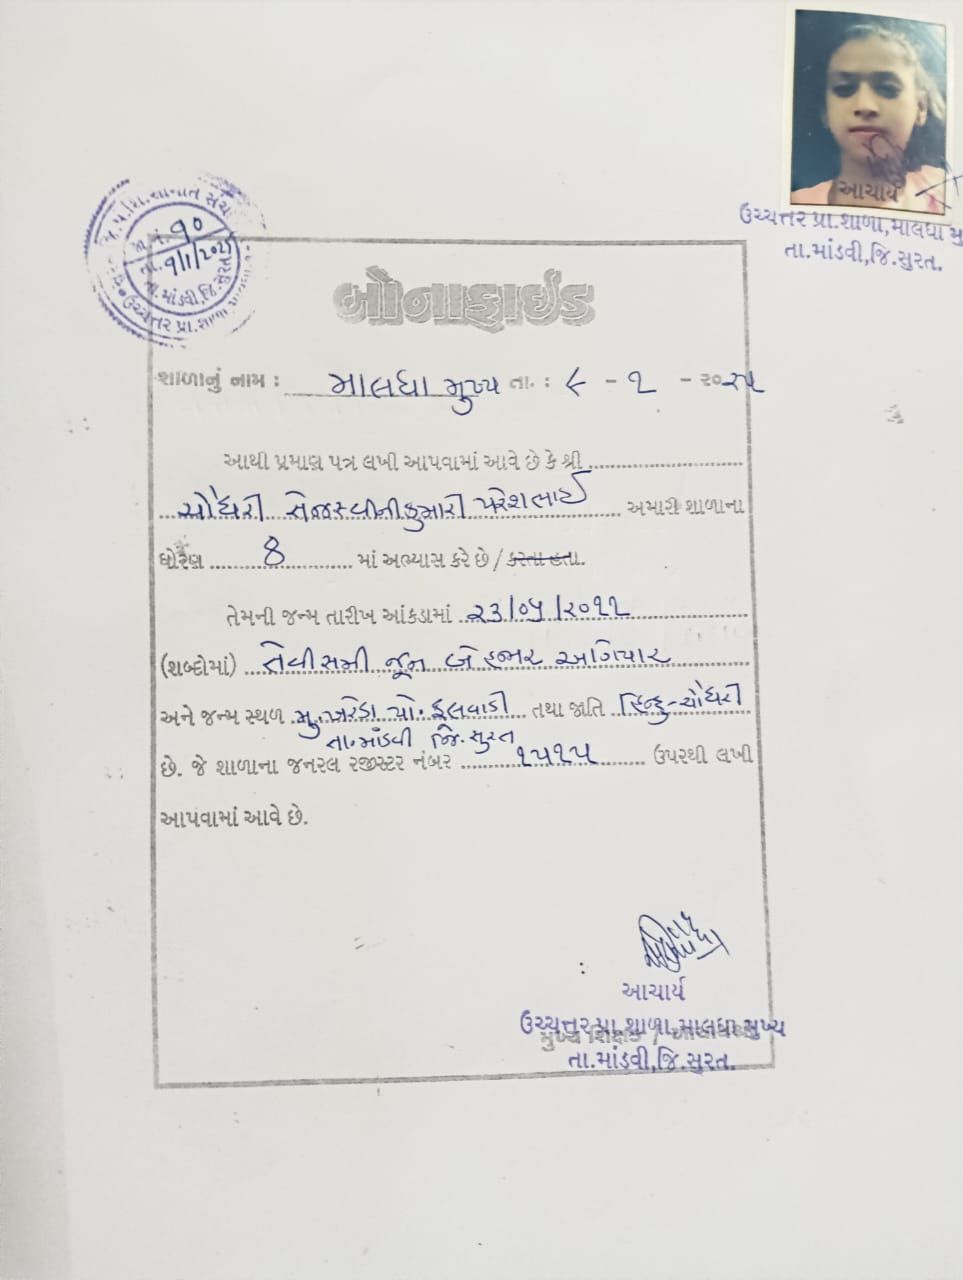 આચાર્ય
ઉચ્ચત્તર પ્રા.શાળા,માલધા મુ
તા.માંડવી,જિ.સુરત.
જા.નં. ૧૦
તા. ૧/૧/૨૦૨૫
તા.માંડવી,જિ.સુરત
ઉચ્ચત્તર પ્રા.શાળા
બોનાફાઈડ
શાળાનું નામ : માલધા મુખ્ય તા. : ૯ - ૧ - ૨૦૨૫
આથી પ્રમાણ પત્ર લખી આપવામાં આવે છે કે શ્રી
ચૌધરી તેજસ્વીનીકુમારી પરેશભાઈ અમારી શાળાના
ધોરણ 8 માં અભ્યાસ કરે છે / કરતા હતા.
તેમની જન્મ તારીખ આંકડામાં ૨૩/૦૫/૨૦૧૧
(શબ્દોમાં) તેવીસમી જૂન બે હજાર અગિયાર
અને જન્મ સ્થળ મુ.ખરેડા પો.ફુલવાડી તથા જાતિ હિન્દુ-ચૌધરી
તા.માંડવી જિ.સુરત
છે. જે શાળાના જનરલ રજીસ્ટર નંબર ૧૫૧૫ ઉપરથી લખી
આપવામાં આવે છે.
આચાર્ય
ઉચ્ચત્તર પ્રા.શાળા,માલધા મુખ્ય
મુખ્ય શિક્ષક /
તા.માંડવી,જિ.સુરત.